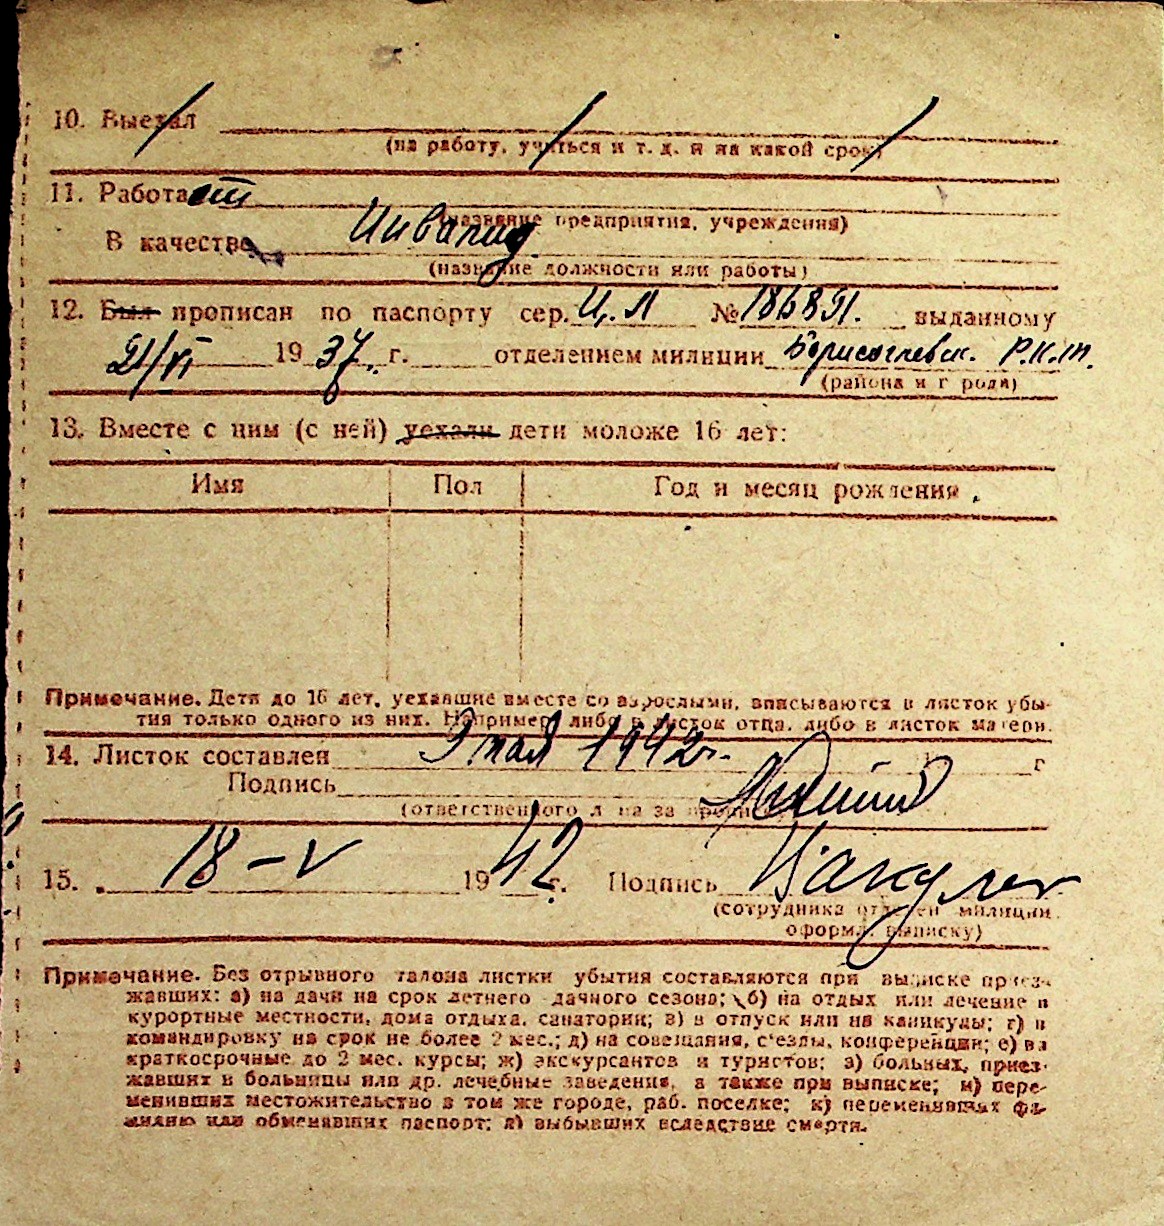 10. Выехал
(на работу, учиться и т. д. и на какой срок)
11. Работает
(название предприятия, учреждения)
В качестве Инвалид
(название должности или работы)
12. Был прописан по паспорту сер. Ц. Л № 186891. выданному
21/VI 1937. г. отделением милиции Борисоглевск. Р.К.М.
(района и г рода)
13. Вместе с ним (с ней) уехали дети моложе 16 лет:
Имя Пол Год и месяц рождения
Примечание. Дети до 16 лет, уехавшие вместе со взрослыми, вписываются в листок убы-
тия только одного из них. Например, либо в листок отца, либо в листок матери.
14. Листок составлен 9 мая 1942 г. г
Подпись
(ответственного л на за
15. 18-V 1942 г. Подпись
(сотрудника отделен милиции
оформл. выписку)
Примечание. Без отрывного талона листки убытия составляются при выписке приез-
жавших: а) на дачи на срок летнего дачного сезона; б) на отдых или лечение в
курортные местности, дома отдыха, санатории; в) в отпуск или на каникулы; г) в
командировку на срок не более 2 мес.; д) на совещания, с'езды, конференции; е) на
краткосрочные до 2 мес. курсы; ж) экскурсантов и туристов; з) больных, приез-
жавших в больницы или др. лечебные заведения, а также при выписке; и) пере-
менивших местожительство в том же городе, раб. поселке; к) переменявших фа-
милию или обменявших паспорт; л) выбывших вследствие смерти.